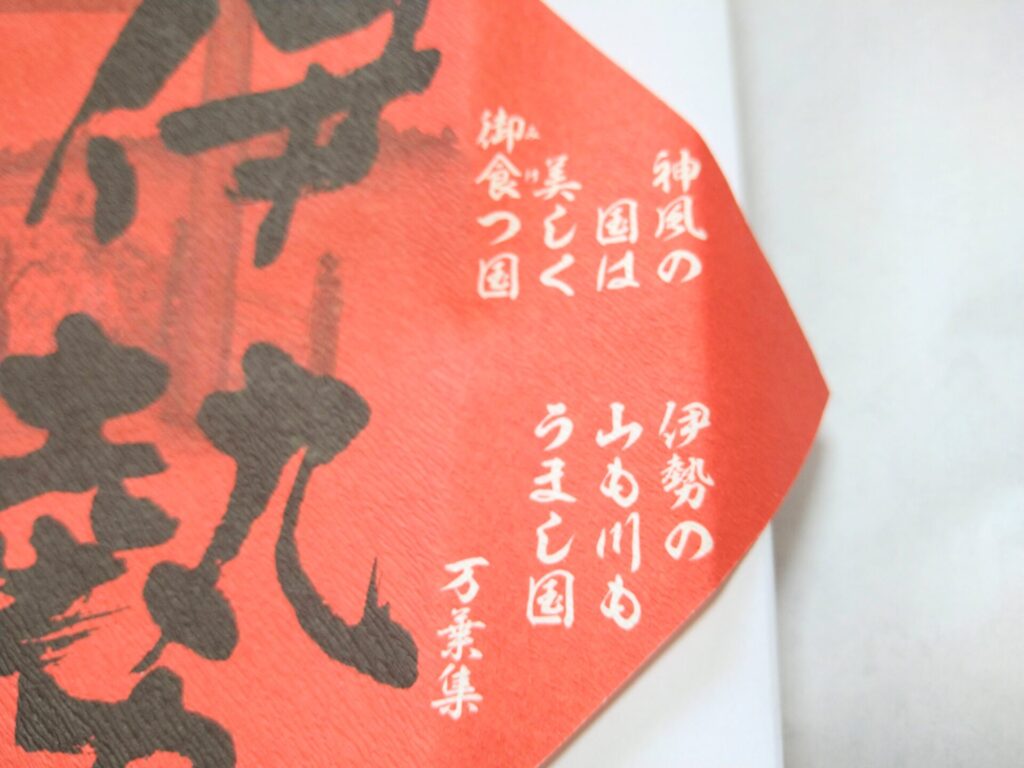 神風の 伊勢の
国は 山も川も
美しく うまし国
御食つ国
万葉集
伊勢